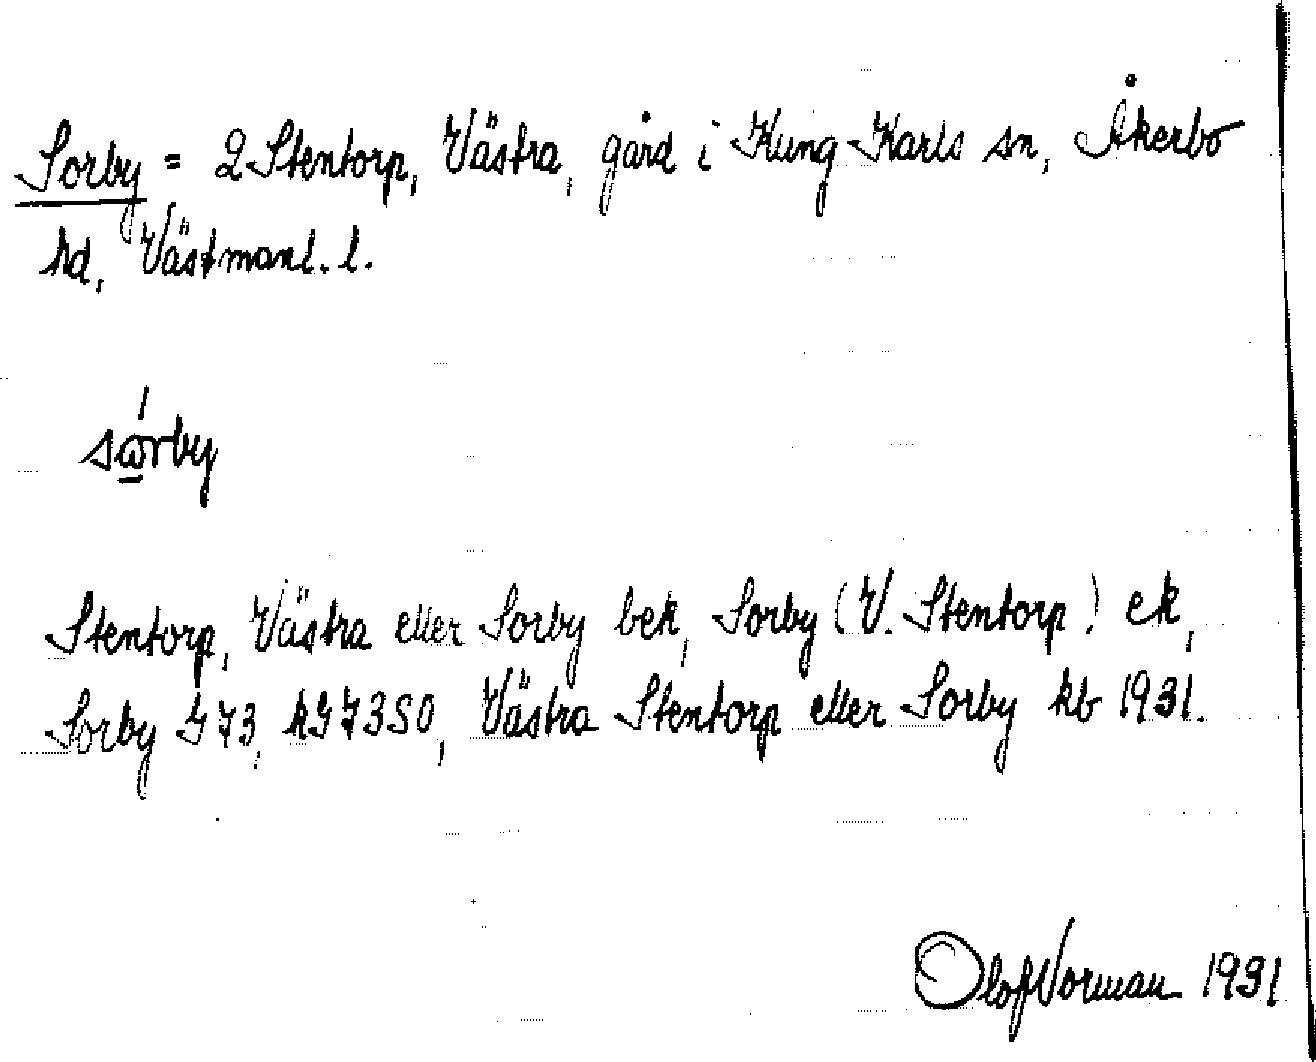 Sorby = 2 Stentorp, Västra, gård i Kung Karls sn, Åkerbo
hd, Västmanl. l.
sörby
Stentorp, Västra eller Sorby bek, Sorby (V. Stentorp) ek,
Sorby J73, hJ73SO, Västra Stentorp eller Sorby kb 1931.
Olof Norman 1931